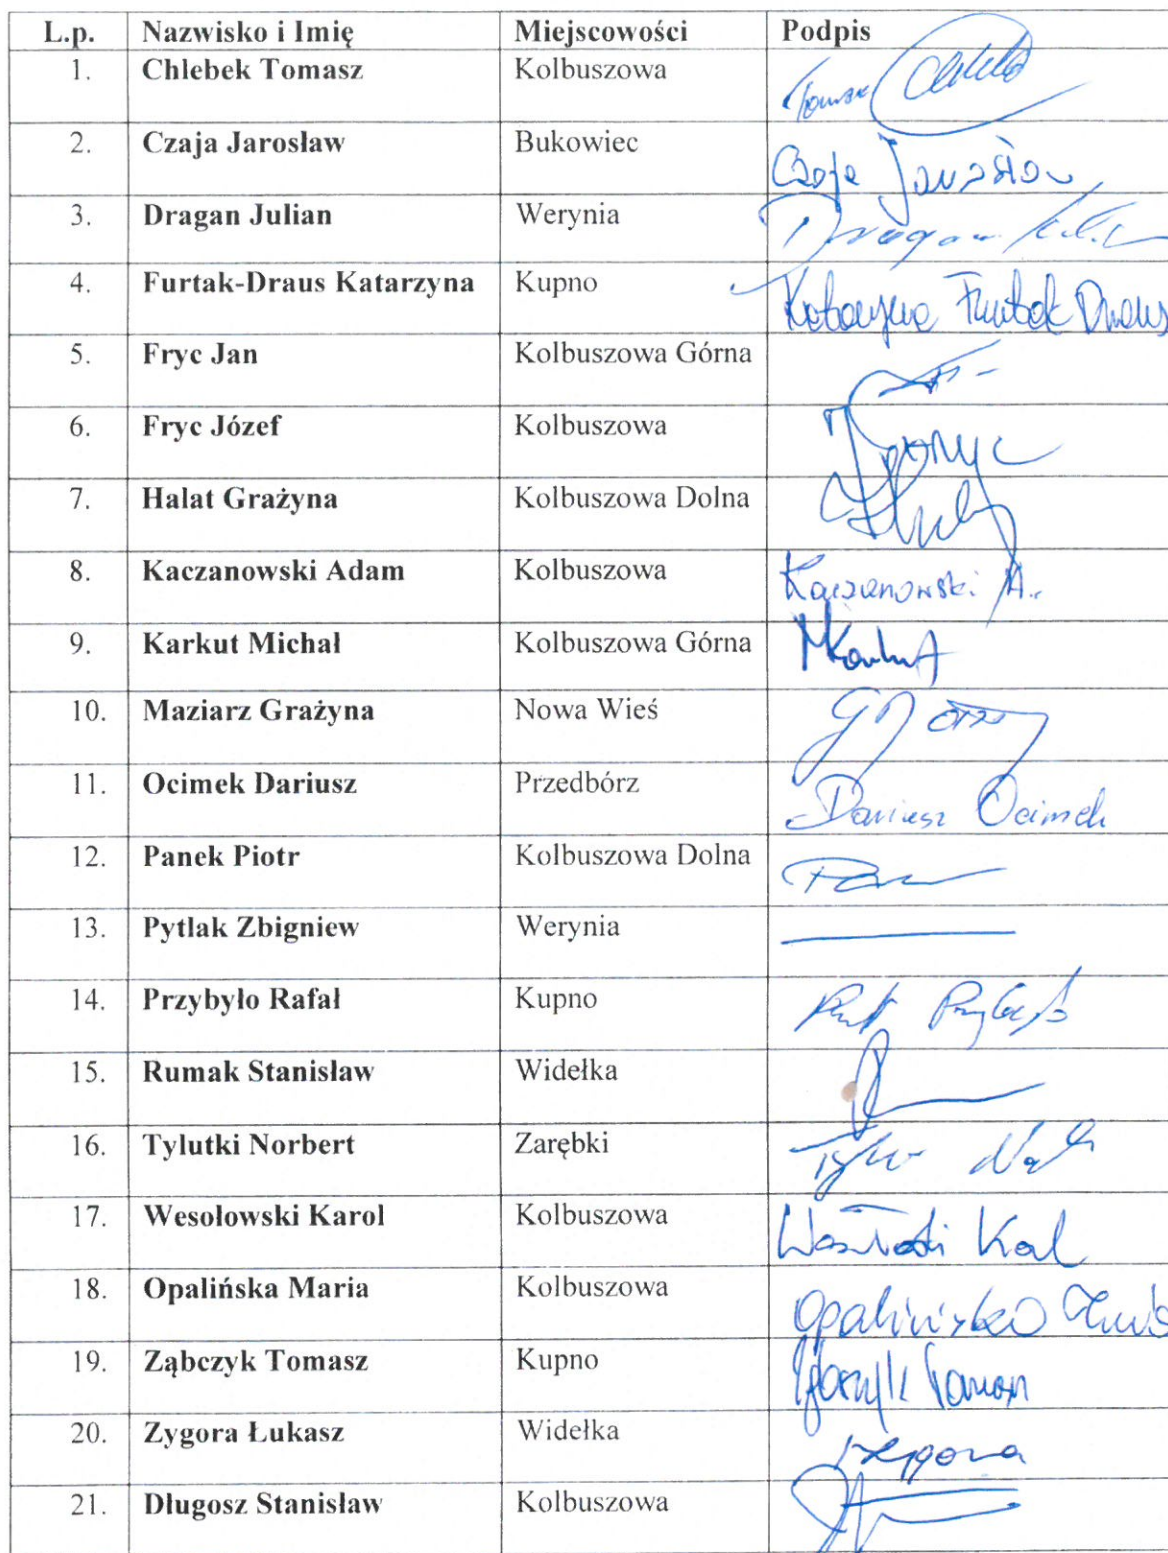 L.p. Nazwisko i Imię Miejscowości Podpis
1. Chlebek Tomasz Kolbuszowa Tomasz
2. Czaja Jarosław Bukowiec Czaja Jarosław
3. Dragan Julian Werynia Dragan
4. Furtak-Draus Katarzyna Kupno Katarzyna Furtak Draus
5. Fryc Jan Kolbuszowa Górna
6. Fryc Józef Kolbuszowa
7. Halat Grażyna Kolbuszowa Dolna
8. Kaczanowski Adam Kolbuszowa Kaczanowski A.
9. Karkut Michał Kolbuszowa Górna MKarkut
10. Maziarz Grażyna Nowa Wieś
11. Ocimek Dariusz Przedbórz Dariusz Ocimek
12. Panek Piotr Kolbuszowa Dolna
13. Pytlak Zbigniew Werynia
14. Przybyło Rafał Kupno
15. Rumak Stanisław Widełka
16. Tylutki Norbert Zarębki
17. Wesołowski Karol Kolbuszowa
18. Opalińska Maria Kolbuszowa Opalińska
19. Ząbczyk Tomasz Kupno
20. Zygora Łukasz Widełka
21. Długosz Stanisław Kolbuszowa